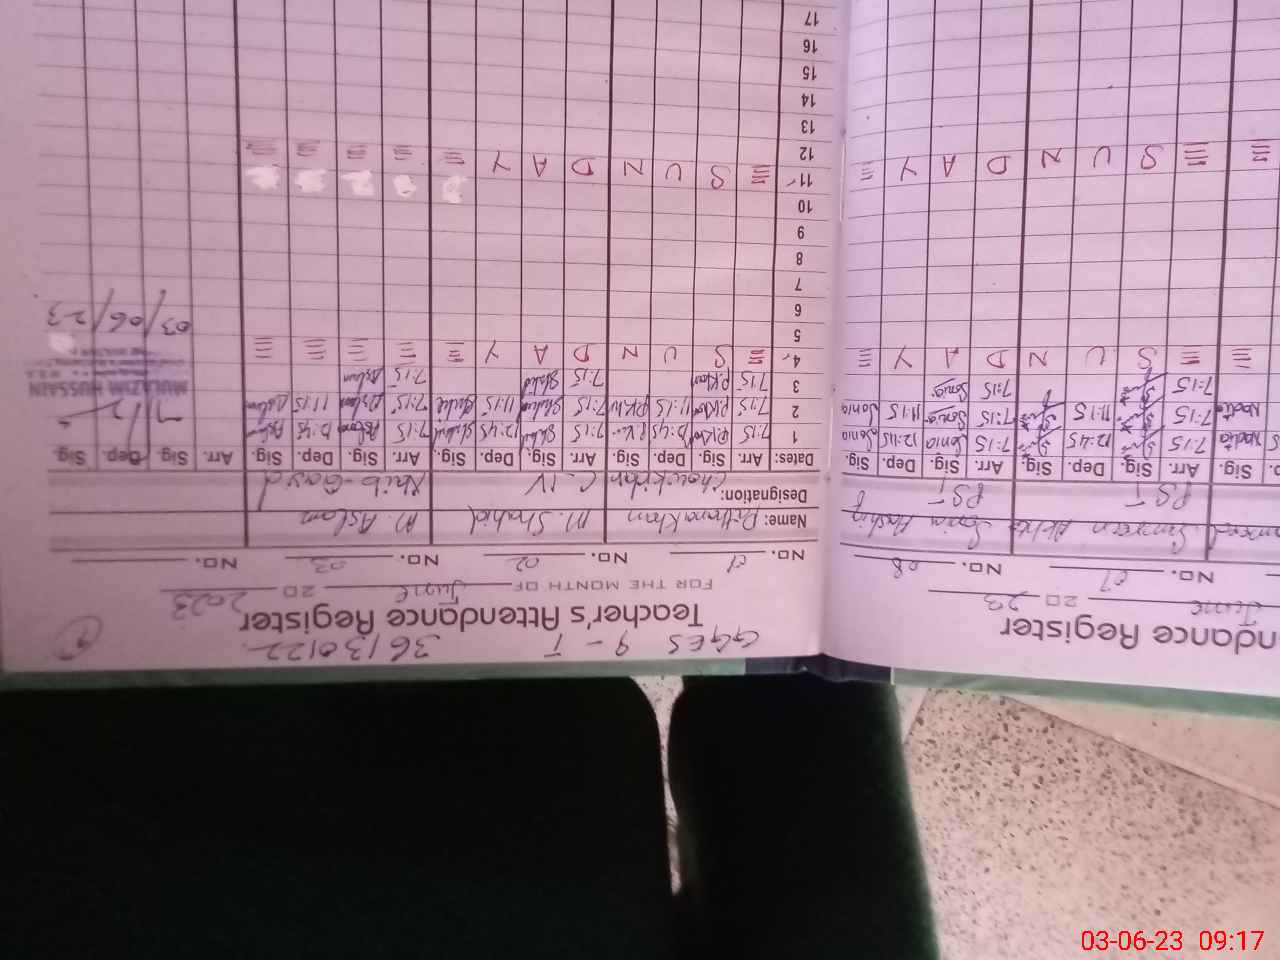 GGES 9-T 36130122
Teacher's Attendance Register
FOR THE MONTH OF June 2023
NO. 01 NO. 02 NO. 03 NO.
Name: M. Shahid M. Aslam
Designation: Chowkidar C-IV Naib-Qasid
Dates: Arr. Sig. Dep. Sig. Arr. Sig. Dep. Sig. Arr. Sig. Dep. Sig. Arr. Sig. Dep. Sig.
1 7:15 P.Khan 12:45 P.Khan 7:15 Shahid 12:45 Shahid 7:15 Aslam 12:45 Aslam
2 7:15 P.Khan 11:15 P.Khan 7:15 Shahid 11:15 Shahid 7:15 Aslam 11:15 Aslam
3 7:15 P.Khan 7:15 Shahid 7:15 Aslam
4 S U N D A Y
MULAZIM HUSSAIN
03/06/23
5
6
7
8
9
10
11 S U N D A Y
12
13
14
15
16
17
ndance Register
June 2023
NO. 07 NO. 08
Simran Sonia
PST PST
Sig. Arr. Sig. Dep. Sig. Arr. Sig. Dep. Sig.
7:15 12:45 7:15 Sonia 12:45 Sonia
7:15 11:15 7:15 Sonia 11:15 Sonia
7:15 7:15 Sonia
S U N D A Y
S U N D A Y
03-06-23 09:17